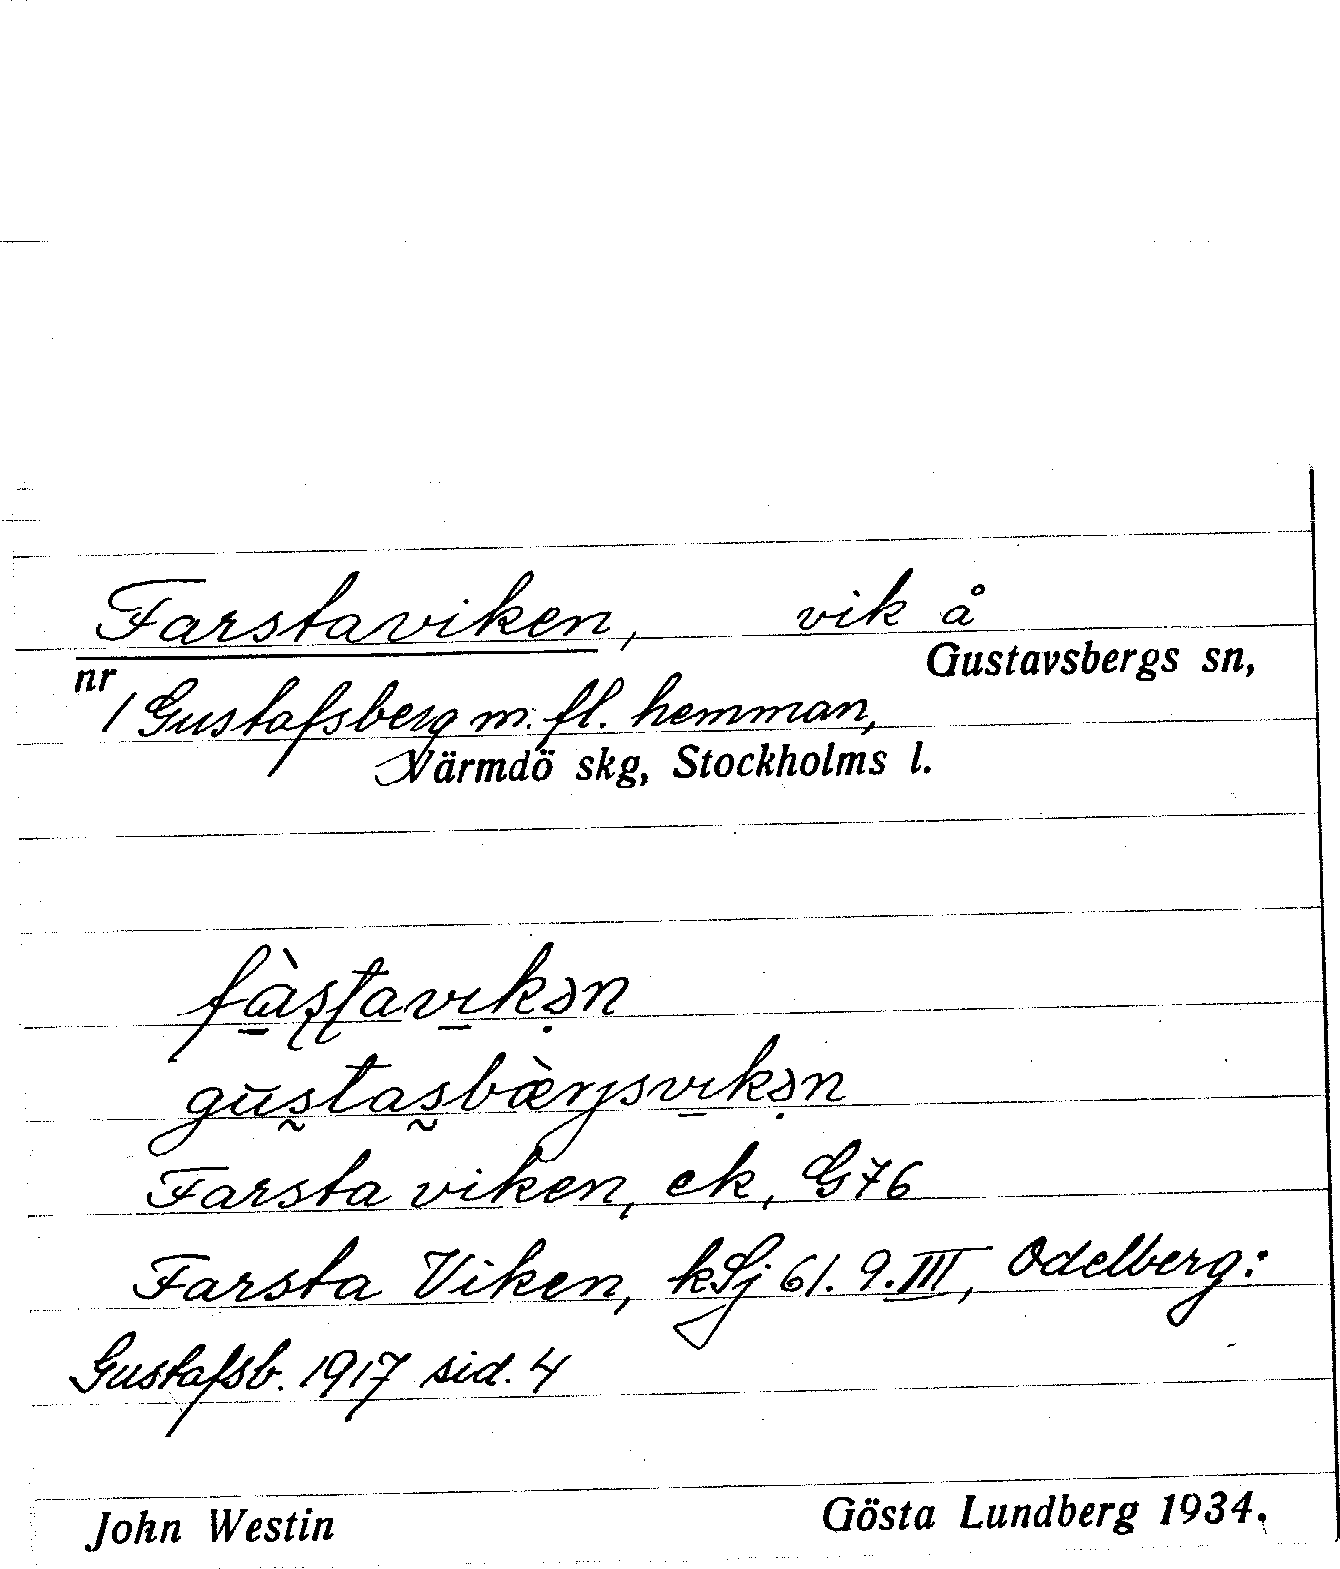 Farstaviken, vik å
Gustavsbergs sn,
nr
1 Gustafsberg m. fl. hemman,
Värmdö skg, Stockholms l.
fàʂʈavikən
gu̅stasbæ̀rjsvikən
Farsta viken, ek, G76
Farsta Viken, kSj 61. 9. III, Odelberg:
Gustafsb. 1917 sid. 4
John Westin
Gösta Lundberg 1934.